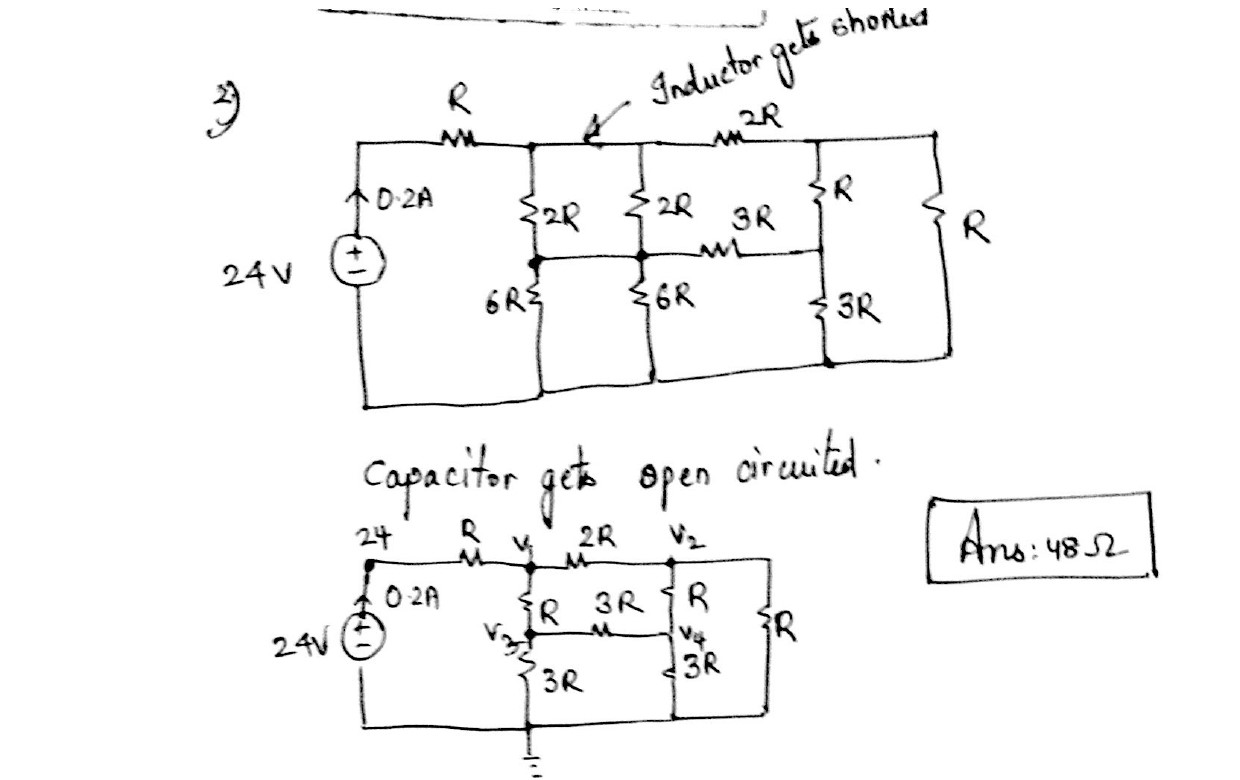 2)
Inductor gets shorted
R
2R
0.2A
2R
2R
3R
R
R
24V
6R
6R
3R
Capacitor gets open circuited.
24
R
V1
2R
V2
Ans: 48Ω
0.2A
R
3R
R
R
24V
V3
V4
3R
3R